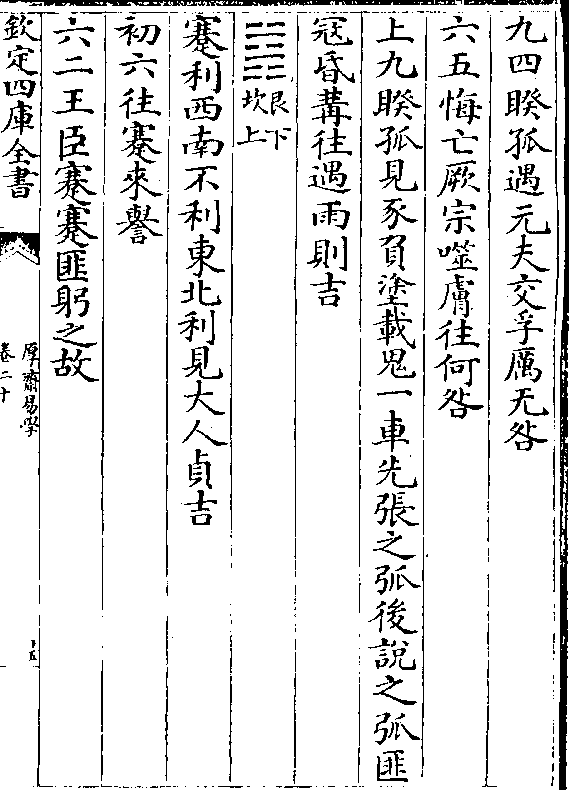 九四睽孤遇元夫交孚厲无咎
六五悔亡厥宗噬膚往何咎
上九睽孤見豕負塗載鬼一車先張之弧後說之弧匪
寇昬媾往遇雨則吉
䷦艮下坎上
蹇利西南不利東北利見大人貞吉
初六往蹇來譽
六二王臣蹇蹇匪躬之故
欽定四庫全書
厚齋易學
卷二十